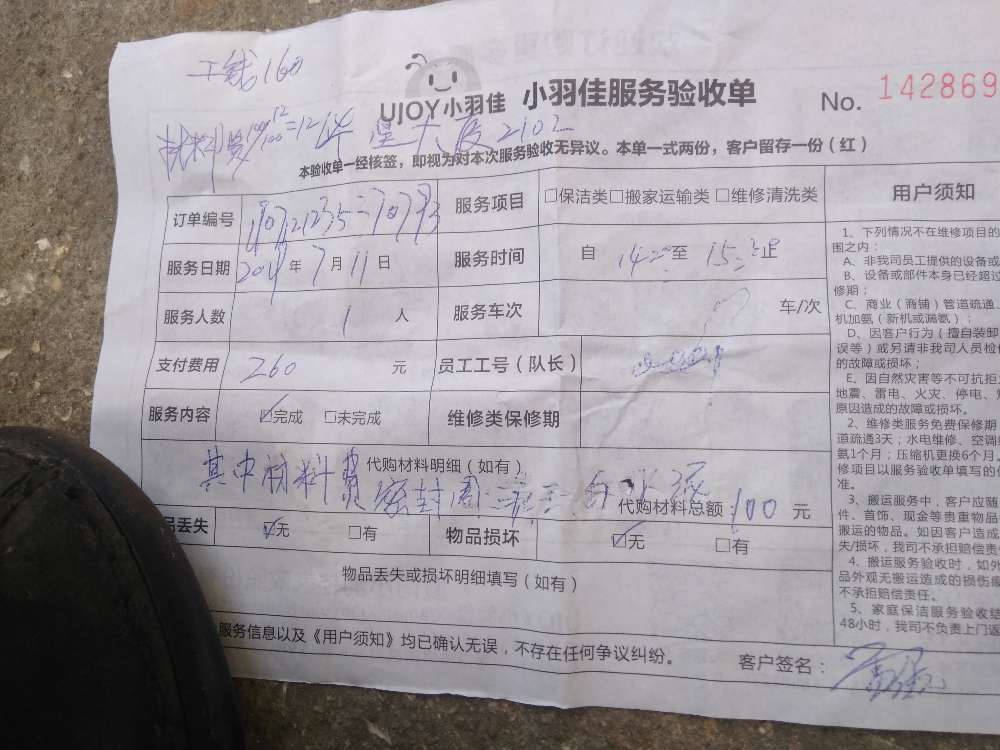 工钱160
UJOY小羽佳 小羽佳服务验收单 No. 142869
材料费
2102
本验收单一经核签，即视为对本次服务验收无异议。本单一式两份，客户留存一份（红）
订单编号 服务项目 □保洁类□搬家运输类□维修清洗类
服务日期 2019年7月11日 服务时间 自 至 止
服务人数 1 人 服务车次 车/次
支付费用 260 元 员工工号（队长）
服务内容 ☑完成 □未完成 维修类保修期
代购材料明细（如有）
其中材料费密封圈
代购材料总额 100 元
品丢失 ☑无 □有 物品损坏 ☑无 □有
物品丢失或损坏明细填写（如有）
服务信息以及《用户须知》均已确认无误，不存在任何争议纠纷。
客户签名：
用户须知
1、下列情况不在维修项目的
围之内：
A、非我司员工提供的设备或
B、设备或部件本身已经超过
修期；
C、商业（商铺）管道疏通
机加氨（新机或漏氨）；
D、因客户行为（擅自装卸
误等）或另请非我司人员检
的故障或损坏；
E、因自然灾害等不可抗拒
地震、雷电、火灾、停电、
原因造成的故障或损坏。
2、维修类服务免费保修期
道疏通3天；水电维修、空调
氨1个月；压缩机更换6个月。
修项目以服务验收单填写的
准。
3、搬运服务中，客户应随
件、首饰、现金等贵重物品
搬运的物品。如因客户造成
失/损坏，我司不承担赔偿责
4、搬运服务验收时，如外
品外观无搬运造成的损伤
不承担赔偿责任。
5、家庭保洁服务验收结
48小时，我司不负责上门返